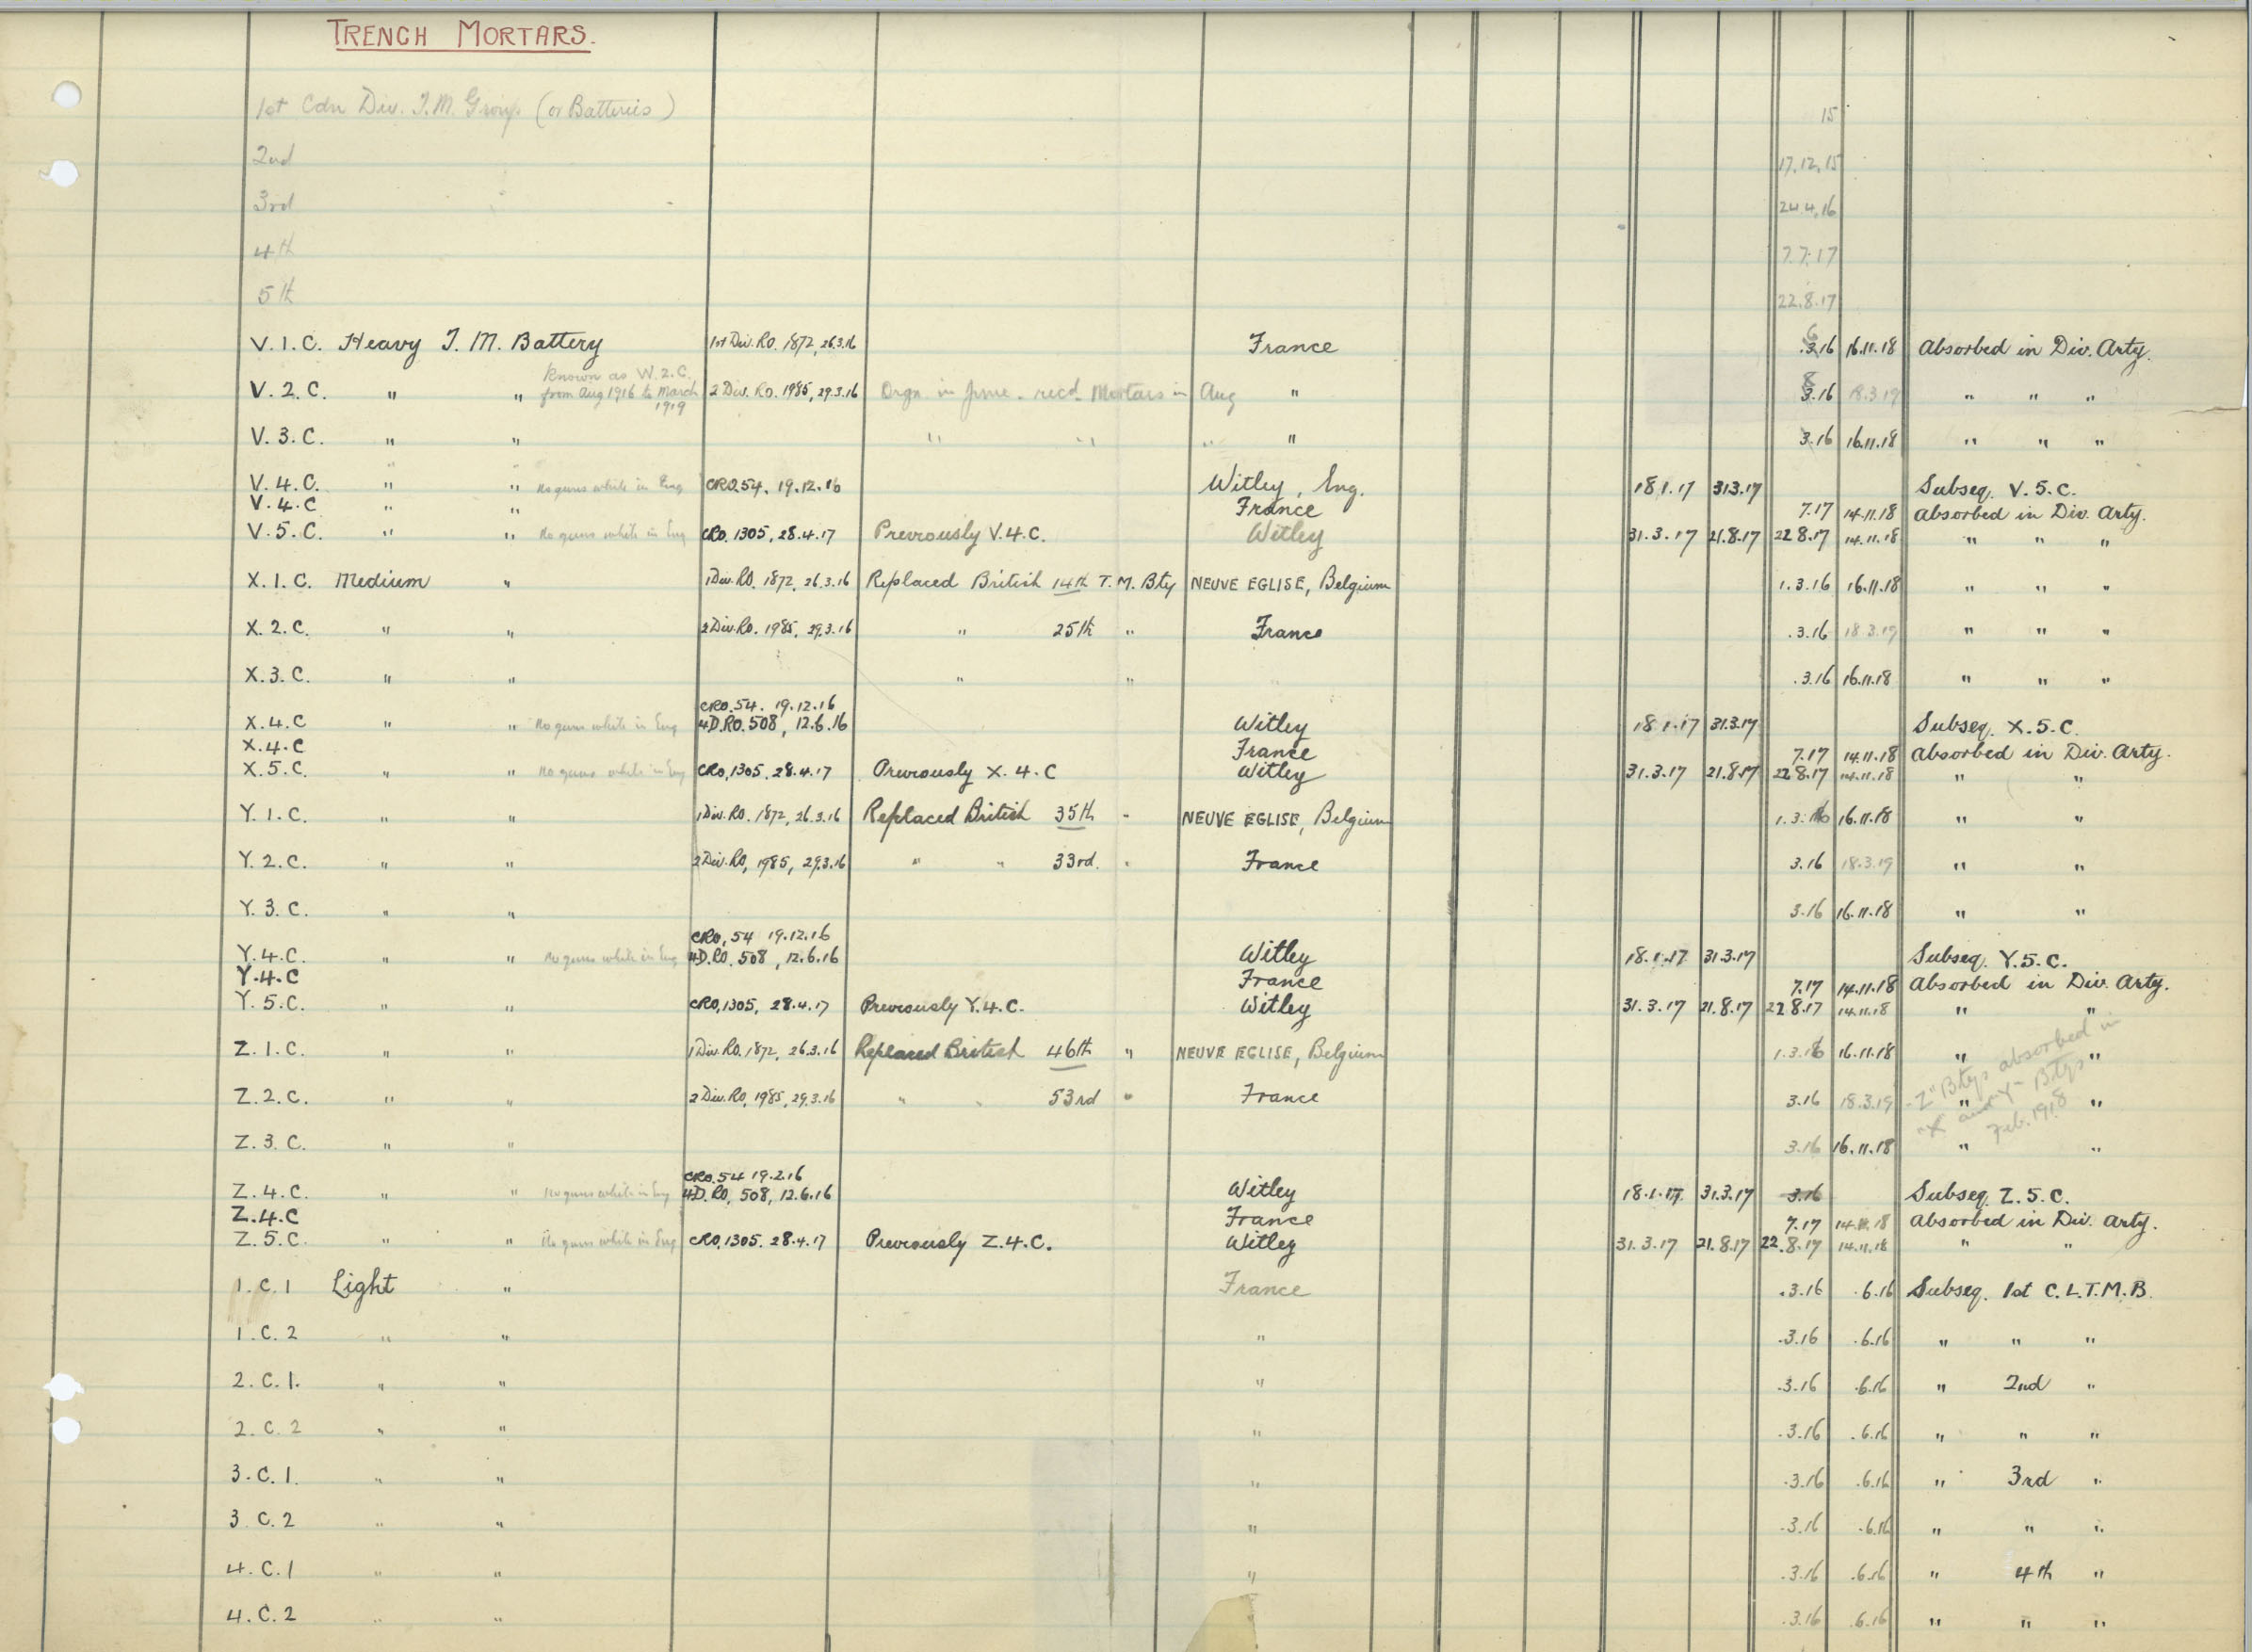 TRENCH MORTARS.
1st Cdn Div. T.M. Group (or Batteries) 15
2nd 17.12.15
3rd 24.4.16
4th 7.7.17
5th 22.8.17
V.1.C. Heavy T.M. Battery 1st Div. RO. 1872, 26.3.16 France 6 .3.16 16.11.18 Absorbed in Div. Arty.
Known as W.2.C.
V.2.C. " " from Aug 1916 to March 1919 2 Div. RO. 1985, 29.3.16 Orgn in June - recd Mortars in Aug " 8 3.16 18.3.19 " " "
V.3.C. " " " " " " 3.16 16.11.18 " " "
V.4.C. " " No guns while in Eng CRO.54, 19.12.16 Witley, Eng. 18.1.17 31.3.17 Subseq. V.5.C.
V.4.C " " France 7.17 14.11.18 absorbed in Div. Arty.
V.5.C. " " No guns while in Eng CRO. 1305, 28.4.17 Previously V.4.C. Witley 31.3.17 21.8.17 22.8.17 14.11.18 " " "
X.1.C. Medium " 1 Div. RO. 1872, 26.3.16 Replaced British 14th T.M. Bty NEUVE EGLISE, Belgium 1.3.16 16.11.18 " " "
X.2.C. " " 2 Div. RO. 1985, 29.3.16 " 25th " France .3.16 18.3.19 " " "
X.3.C. " " " " " .3.16 16.11.18 " " "
CRO.54. 19.12.16
X.4.C " " No guns while in Eng 4D.RO.508, 12.6.16 Witley 18.1.17 31.3.17 Subseq. X.5.C.
X.4.C France 7.17 14.11.18 absorbed in Div. Arty.
X.5.C. " " No guns while in Eng CRO, 1305, 28.4.17 Previously X.4.C Witley 31.3.17 21.8.17 22.8.17 14.11.18 " "
Y.1.C. " " 1 Div. RO. 1872, 26.3.16 Replaced British 35th " NEUVE EGLISE, Belgium 1.3.16 16.11.18 " "
Y.2.C. " " 2 Div. RO, 1985, 29.3.16 " " 33rd. " France 3.16 18.3.19 " "
Y.3.C. " " 3.16 16.11.18 " "
CRO, 54 19.12.16
Y.4.C. " " No guns while in Eng 4D.RO. 508, 12.6.16 Witley 18.1.17 31.3.17 Subseq. Y.5.C.
Y.4.C France 7.17 14.11.18 absorbed in Div. Arty.
Y.5.C. " " CRO, 1305, 28.4.17 Previously Y.4.C. Witley 31.3.17 21.8.17 22.8.17 14.11.18 " "
Z.1.C. " " 1 Div. RO. 1872, 26.3.16 Replaced British 46th " NEUVE EGLISE, Belgium 1.3.16 16.11.18 " "
"Z" Btys absorbed in
"X" and "Y" Btys
Feb. 1918
Z.2.C. " " 2 Div. RO, 1985, 29.3.16 " " 53rd " France 3.16 18.3.19 " "
Z.3.C. " " 3.16 16.11.18 " "
CRO.54 19.2.16
Z.4.C. " " No guns while in Eng 4D.RO, 508, 12.6.16 Witley 18.1.17. 31.3.17 3.16 Subseq. Z.5.C.
Z.4.C France 7.17 14.11.18 absorbed in Div. Arty.
Z.5.C. " " No guns while in Eng CRO, 1305. 28.4.17 Previously Z.4.C. Witley 31.3.17 21.8.17 22.8.17 14.11.18 " "
1.C.1 Light " France .3.16 .6.16 Subseq. 1st C.L.T.M.B.
1.C.2 " " " .3.16 .6.16 " " "
2.C.1. " " " .3.16 .6.16 " 2nd "
2.C.2 " " " .3.16 .6.16 " " "
3.C.1. " " " .3.16 .6.16 " 3rd "
3 C.2 " " " .3.16 .6.16 " " "
4.C.1 " " " .3.16 .6.16 " 4th "
4.C.2 " " .3.16 .6.16 " " "